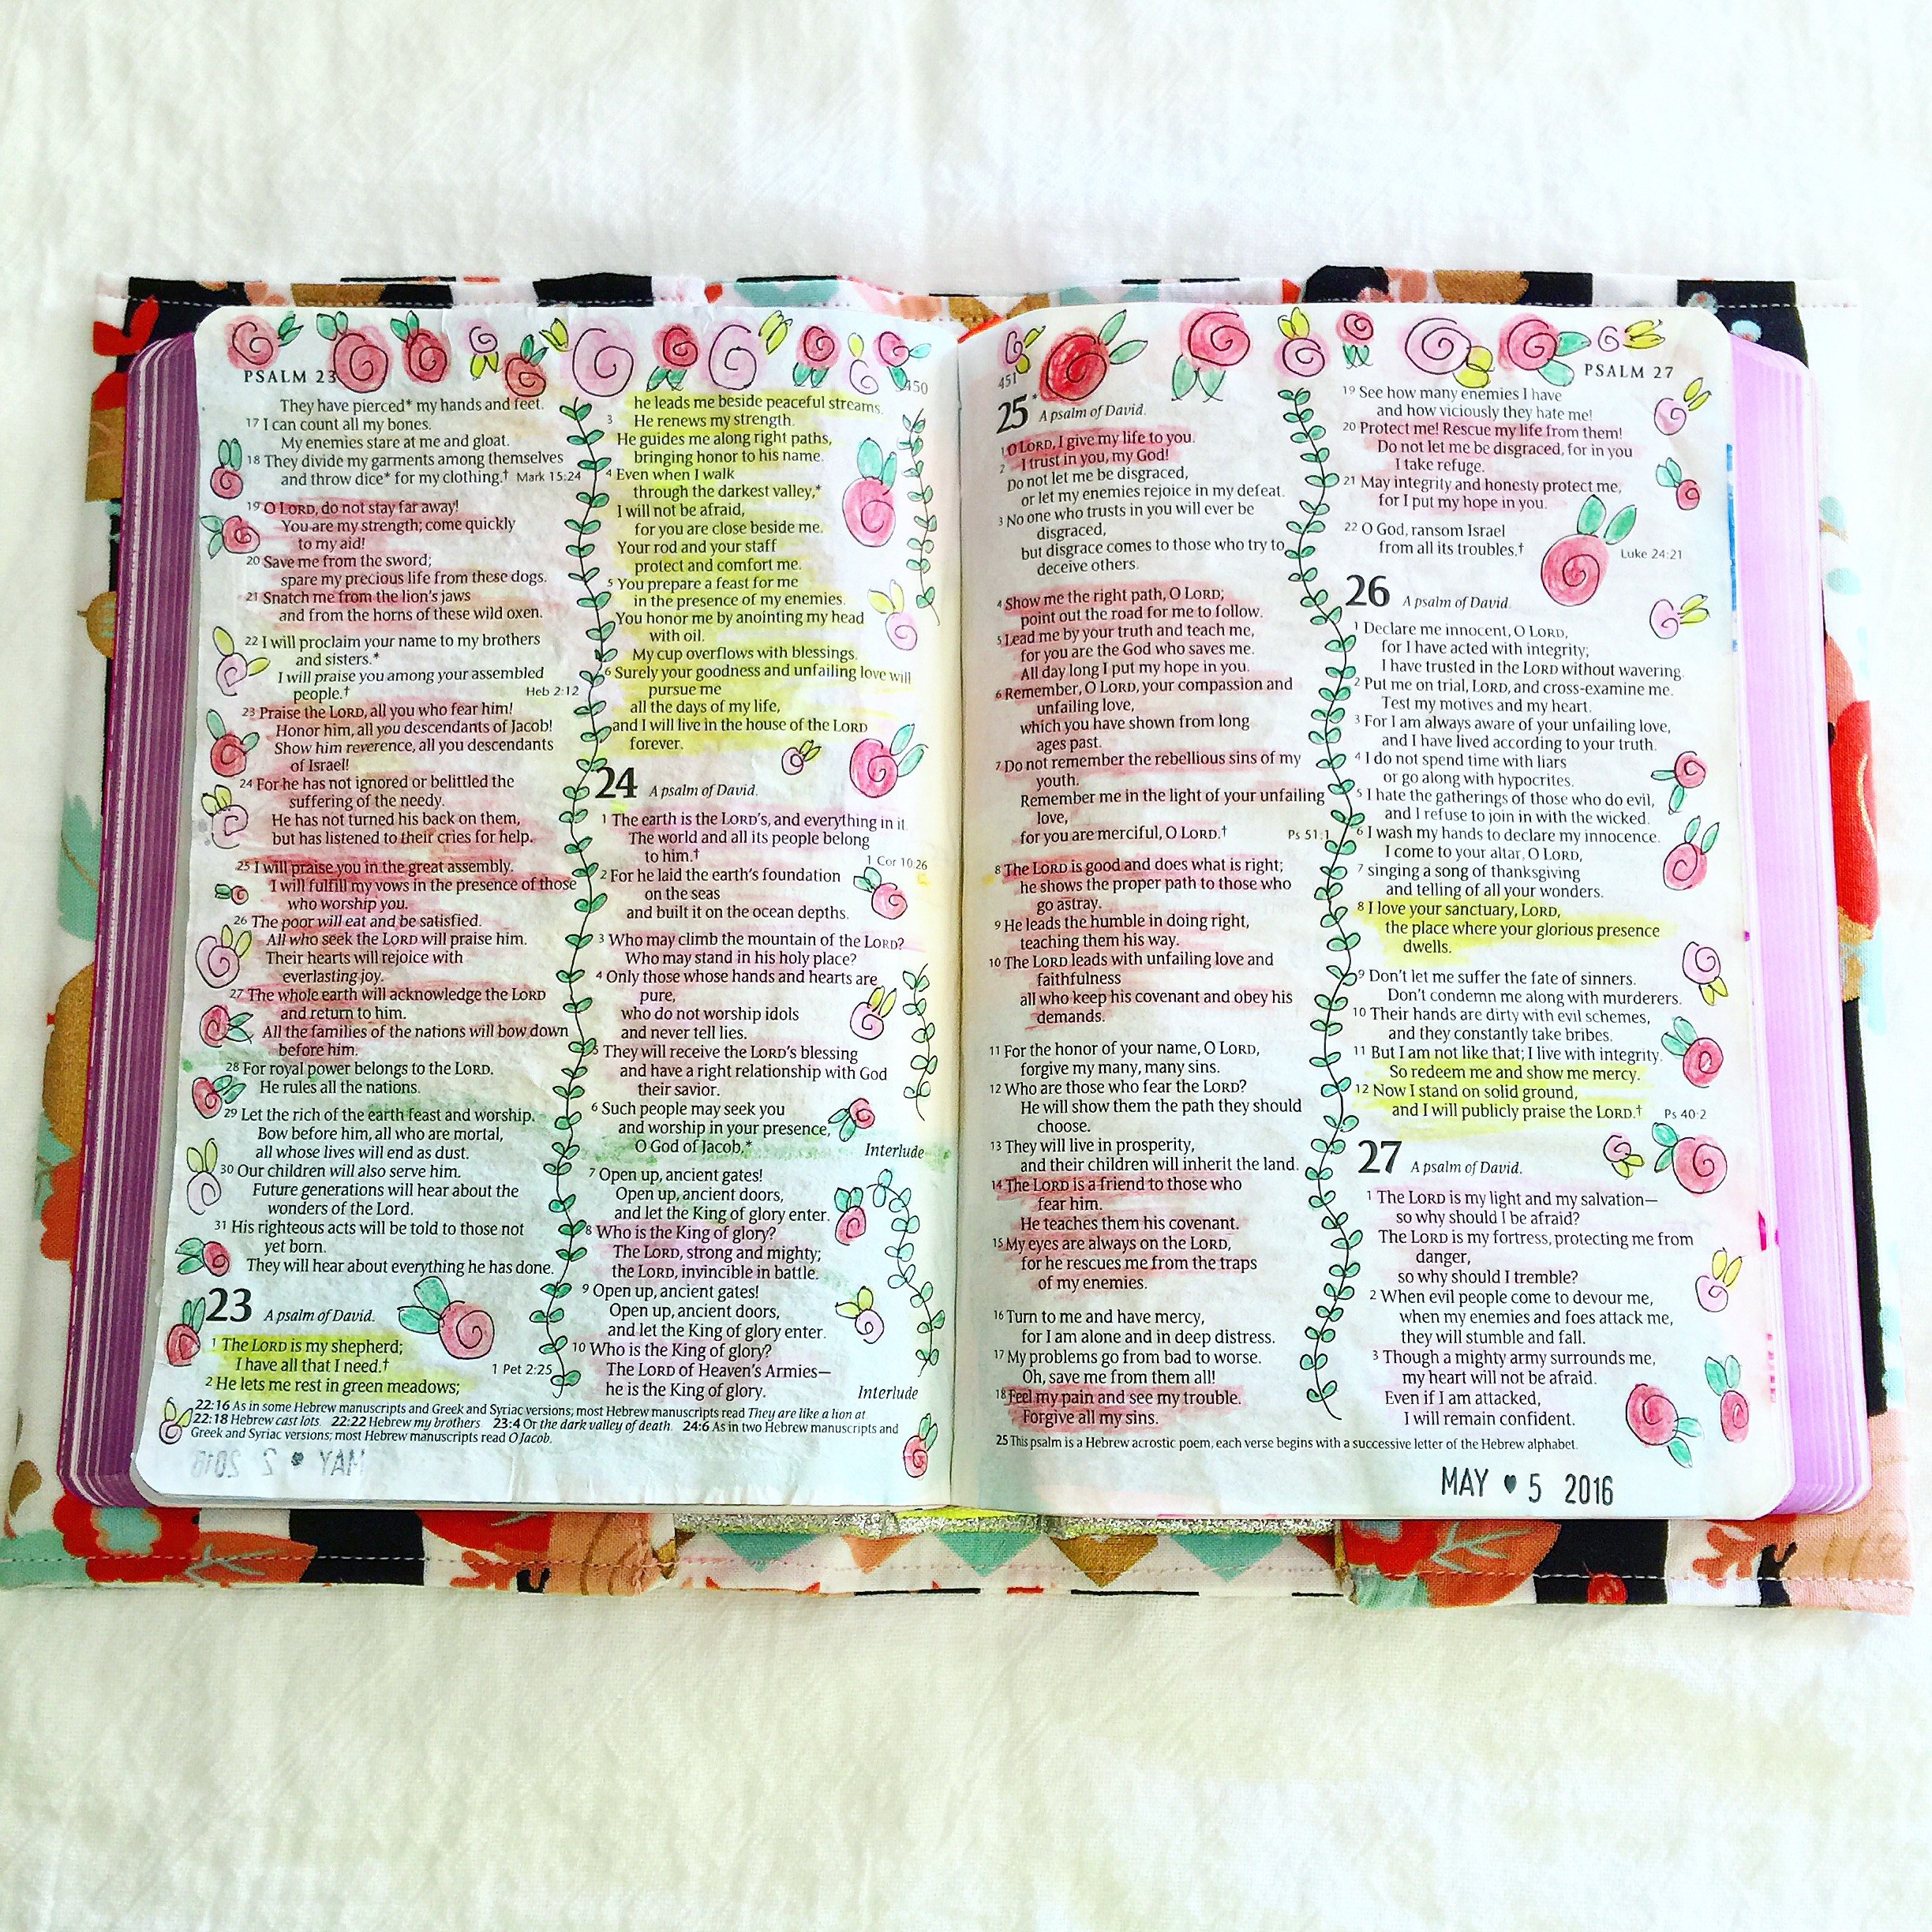 PSALM 23
450
They have pierced* my hands and feet.
17 I can count all my bones.
My enemies stare at me and gloat.
18 They divide my garments among themselves
and throw dice* for my clothing.† Mark 15:24
19 O LORD, do not stay far away!
You are my strength; come quickly
to my aid!
20 Save me from the sword;
spare my precious life from these dogs.
21 Snatch me from the lion's jaws
and from the horns of these wild oxen.
22 I will proclaim your name to my brothers
and sisters.*
I will praise you among your assembled
people.† Heb 2:12
23 Praise the LORD, all you who fear him!
Honor him, all you descendants of Jacob!
Show him reverence, all you descendants
of Israel!
24 For he has not ignored or belittled the
suffering of the needy.
He has not turned his back on them,
but has listened to their cries for help.
25 I will praise you in the great assembly.
I will fulfill my vows in the presence of those
who worship you.
26 The poor will eat and be satisfied.
All who seek the LORD will praise him.
Their hearts will rejoice with
everlasting joy.
27 The whole earth will acknowledge the LORD
and return to him.
All the families of the nations will bow down
before him.
28 For royal power belongs to the LORD.
He rules all the nations.
29 Let the rich of the earth feast and worship.
Bow before him, all who are mortal,
all whose lives will end as dust.
30 Our children will also serve him.
Future generations will hear about the
wonders of the Lord.
31 His righteous acts will be told to those not
yet born.
They will hear about everything he has done.
23 A psalm of David.
1 The LORD is my shepherd;
I have all that I need.† 1 Pet 2:25
2 He lets me rest in green meadows;
he leads me beside peaceful streams.
3 He renews my strength.
He guides me along right paths,
bringing honor to his name.
4 Even when I walk
through the darkest valley,*
I will not be afraid,
for you are close beside me.
Your rod and your staff
protect and comfort me.
5 You prepare a feast for me
in the presence of my enemies.
You honor me by anointing my head
with oil.
My cup overflows with blessings.
6 Surely your goodness and unfailing love will
pursue me
all the days of my life,
and I will live in the house of the LORD
forever.
24 A psalm of David.
1 The earth is the LORD's, and everything in it.
The world and all its people belong
to him.† 1 Cor 10:26
2 For he laid the earth's foundation
on the seas
and built it on the ocean depths.
3 Who may climb the mountain of the LORD?
Who may stand in his holy place?
4 Only those whose hands and hearts are
pure,
who do not worship idols
and never tell lies.
5 They will receive the LORD's blessing
and have a right relationship with God
their savior.
6 Such people may seek you
and worship in your presence,
O God of Jacob.* Interlude
7 Open up, ancient gates!
Open up, ancient doors,
and let the King of glory enter.
8 Who is the King of glory?
The LORD, strong and mighty;
the LORD, invincible in battle.
9 Open up, ancient gates!
Open up, ancient doors,
and let the King of glory enter.
10 Who is the King of glory?
The LORD of Heaven's Armies—
he is the King of glory. Interlude
22:16 As in some Hebrew manuscripts and Greek and Syriac versions; most Hebrew manuscripts read They are like a lion at
22:18 Hebrew cast lots. 22:22 Hebrew my brothers. 23:4 Or the dark valley of death. 24:6 As in two Hebrew manuscripts and
Greek and Syriac versions; most Hebrew manuscripts read O Jacob.
MAY ♥ 2 2016
451
PSALM 27
25* A psalm of David.
1 O LORD, I give my life to you.
2 I trust in you, my God!
Do not let me be disgraced,
or let my enemies rejoice in my defeat.
3 No one who trusts in you will ever be
disgraced,
but disgrace comes to those who try to
deceive others.
4 Show me the right path, O LORD;
point out the road for me to follow.
5 Lead me by your truth and teach me,
for you are the God who saves me.
All day long I put my hope in you.
6 Remember, O LORD, your compassion and
unfailing love,
which you have shown from long
ages past.
7 Do not remember the rebellious sins of my
youth.
Remember me in the light of your unfailing
love,
for you are merciful, O LORD.† Ps 51:1
8 The LORD is good and does what is right;
he shows the proper path to those who
go astray.
9 He leads the humble in doing right,
teaching them his way.
10 The LORD leads with unfailing love and
faithfulness
all who keep his covenant and obey his
demands.
11 For the honor of your name, O LORD,
forgive my many, many sins.
12 Who are those who fear the LORD?
He will show them the path they should
choose.
13 They will live in prosperity,
and their children will inherit the land.
14 The LORD is a friend to those who
fear him.
He teaches them his covenant.
15 My eyes are always on the LORD,
for he rescues me from the traps
of my enemies.
16 Turn to me and have mercy,
for I am alone and in deep distress.
17 My problems go from bad to worse.
Oh, save me from them all!
18 Feel my pain and see my trouble.
Forgive all my sins.
19 See how many enemies I have
and how viciously they hate me!
20 Protect me! Rescue my life from them!
Do not let me be disgraced, for in you
I take refuge.
21 May integrity and honesty protect me,
for I put my hope in you.
22 O God, ransom Israel
from all its troubles.† Luke 24:21
26 A psalm of David.
1 Declare me innocent, O LORD,
for I have acted with integrity;
I have trusted in the LORD without wavering.
2 Put me on trial, LORD, and cross-examine me.
Test my motives and my heart.
3 For I am always aware of your unfailing love,
and I have lived according to your truth.
4 I do not spend time with liars
or go along with hypocrites.
5 I hate the gatherings of those who do evil,
and I refuse to join in with the wicked.
6 I wash my hands to declare my innocence.
I come to your altar, O LORD,
7 singing a song of thanksgiving
and telling of all your wonders.
8 I love your sanctuary, LORD,
the place where your glorious presence
dwells.
9 Don't let me suffer the fate of sinners.
Don't condemn me along with murderers.
10 Their hands are dirty with evil schemes,
and they constantly take bribes.
11 But I am not like that; I live with integrity.
So redeem me and show me mercy.
12 Now I stand on solid ground,
and I will publicly praise the LORD.† Ps 40:2
27 A psalm of David.
1 The LORD is my light and my salvation—
so why should I be afraid?
The LORD is my fortress, protecting me from
danger,
so why should I tremble?
2 When evil people come to devour me,
when my enemies and foes attack me,
they will stumble and fall.
3 Though a mighty army surrounds me,
my heart will not be afraid.
Even if I am attacked,
I will remain confident.
25 This psalm is a Hebrew acrostic poem, each verse begins with a successive letter of the Hebrew alphabet.
MAY ♥ 5 2016